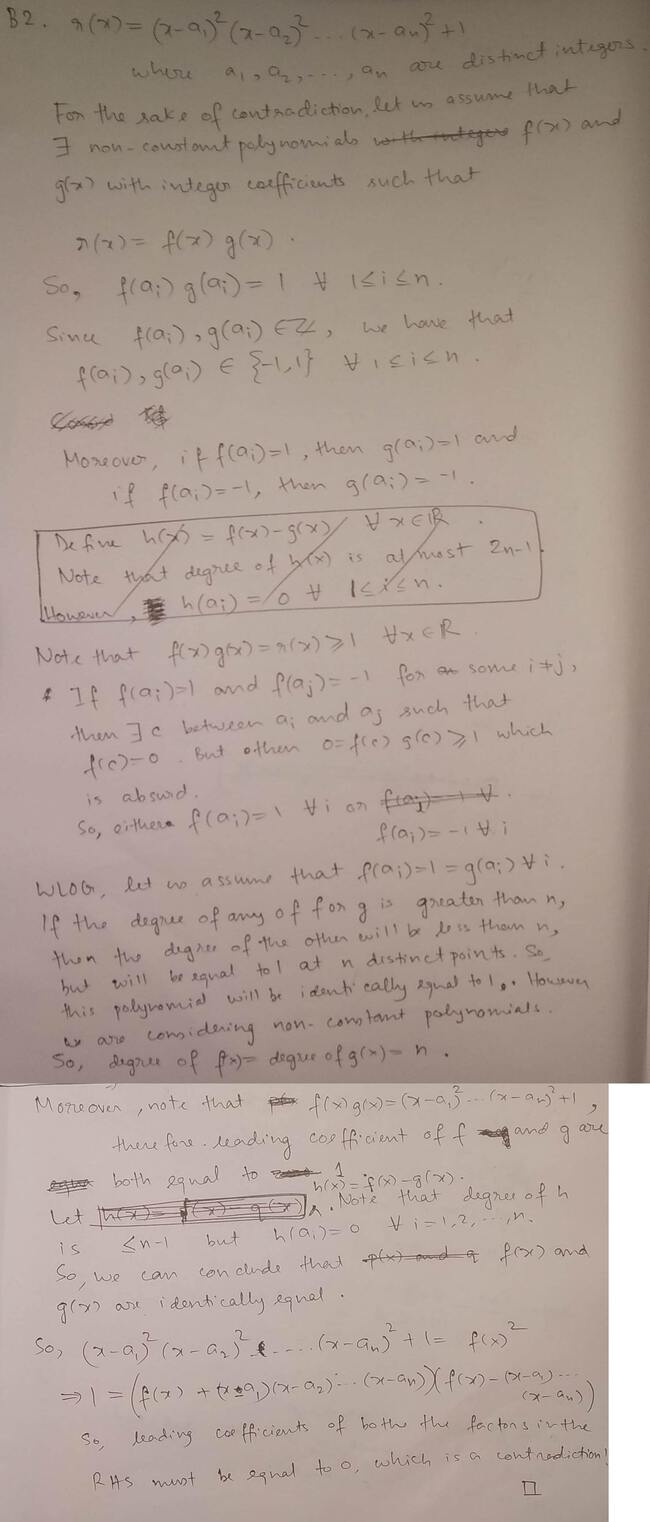 B2. r(x) = (x-a₁)² (x-a₂)² ... (x-aₙ)² + 1
where a₁, a₂, ..., aₙ are distinct integers.
For the sake of contradiction, let us assume that
∃ non-constant polynomials with integers f(x) and
g(x) with integer coefficients such that
r(x) = f(x) g(x).
So, f(aᵢ) g(aᵢ) = 1 ∀ 1≤i≤n.
Since f(aᵢ), g(aᵢ) ∈ ℤ, we have that
f(aᵢ), g(aᵢ) ∈ {-1, 1} ∀ 1≤i≤n.
Moreover, if f(aᵢ)=1, then g(aᵢ)=1 and
if f(aᵢ)=-1, then g(aᵢ)=-1.
Define h(x) = f(x)-g(x) ∀ x∈ℝ.
Note that degree of h(x) is at most 2n-1.
However, h(aᵢ) = 0 ∀ 1≤i≤n.
Note that f(x)g(x)=r(x)≥1 ∀x∈ℝ.
If f(aᵢ)=1 and f(aⱼ)=-1 for some i≠j,
then ∃ c between aᵢ and aⱼ such that
f(c)=0. But then 0=f(c) g(c)≥1 which
is absurd.
So, either f(aᵢ)=1 ∀ i or f(aⱼ)=-1 ∀.
f(aᵢ)=-1 ∀ i
WLOG, let us assume that f(aᵢ)=1=g(aᵢ) ∀ i.
If the degree of any of f or g is greater than n,
then the degree of the other will be less than n,
but will be equal to 1 at n distinct points. So,
this polynomial will be identically equal to 1. However
we are considering non-constant polynomials.
So, degree of f(x) = degree of g(x) = n.
Moreover, note that f(x)g(x)=(x-a₁)²...(x-aₙ)²+1,
therefore leading coefficient of f and g are
both equal to 1
h(x)=f(x)-g(x).
Let h(x) = f(x)-g(x). Note that degree of h
is ≤n-1 but h(aᵢ)=0 ∀ i=1,2,...,n.
So, we can conclude that p(x) and q f(x) and
g(x) are identically equal.
So, (x-a₁)² (x-a₂)² ..... (x-aₙ)² + 1 = f(x)²
⇒ 1 = (f(x) + (x-a₁)(x-a₂)...(x-aₙ))(f(x) - (x-a₁)...
(x-aₙ))
So, leading coefficients of both the factors in the
RHS must be equal to 0, which is a contradiction!
□